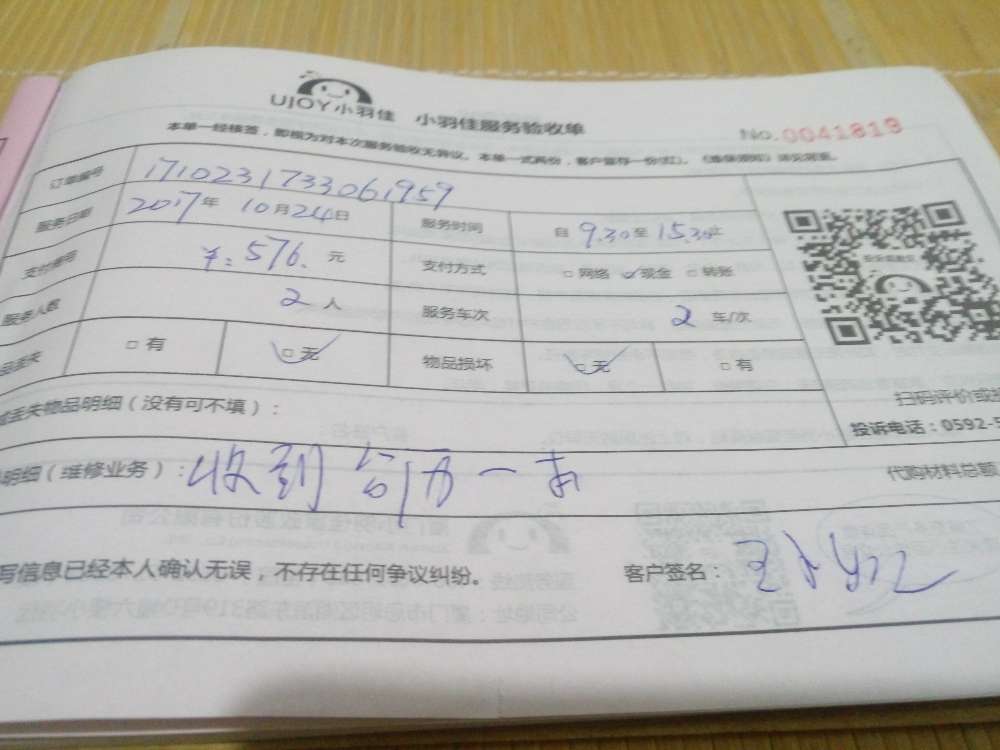 UJOY小羽佳 小羽佳服务验收单
No.0041819
本单一经核签，即视为对本次服务验收无异议。本单一式两份，客户留存一份(红)。
订单编号 1710231733061959
服务日期 2017年 10月24日 服务时间 自 9.30至 15.30止
支付 ¥:576.元 支付方式 □网络 ☑现金 □转账
服务人数 2人 服务车次 2 车/次
丢失 □有 ☑无 物品损坏 ☑无 □有
丢失物品明细（没有可不填）：
扫码评价或
投诉电话：0592-5
明细（维修业务）：收到 一本
代购材料总额
写信息已经本人确认无误，不存在任何争议纠纷。 客户签名：